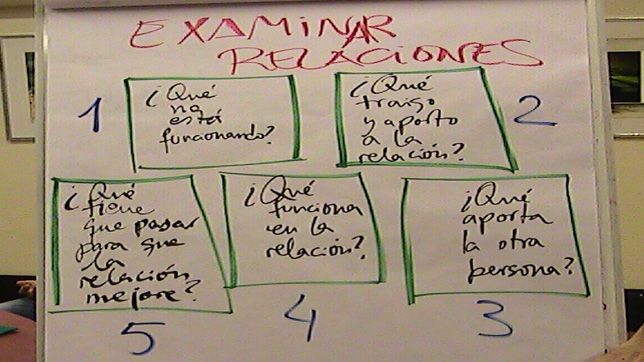 EXAMINAR
RELACIONES
1
¿Qué
no
está
funcionando?
¿Qué
traigo
y aporto
a la
relación?
2
¿Qué
tiene
que pasar
para que
la
relación
mejore?
5
¿Qué
funciona
en la
relación?
4
¿Qué
aporta
la otra
persona?
3